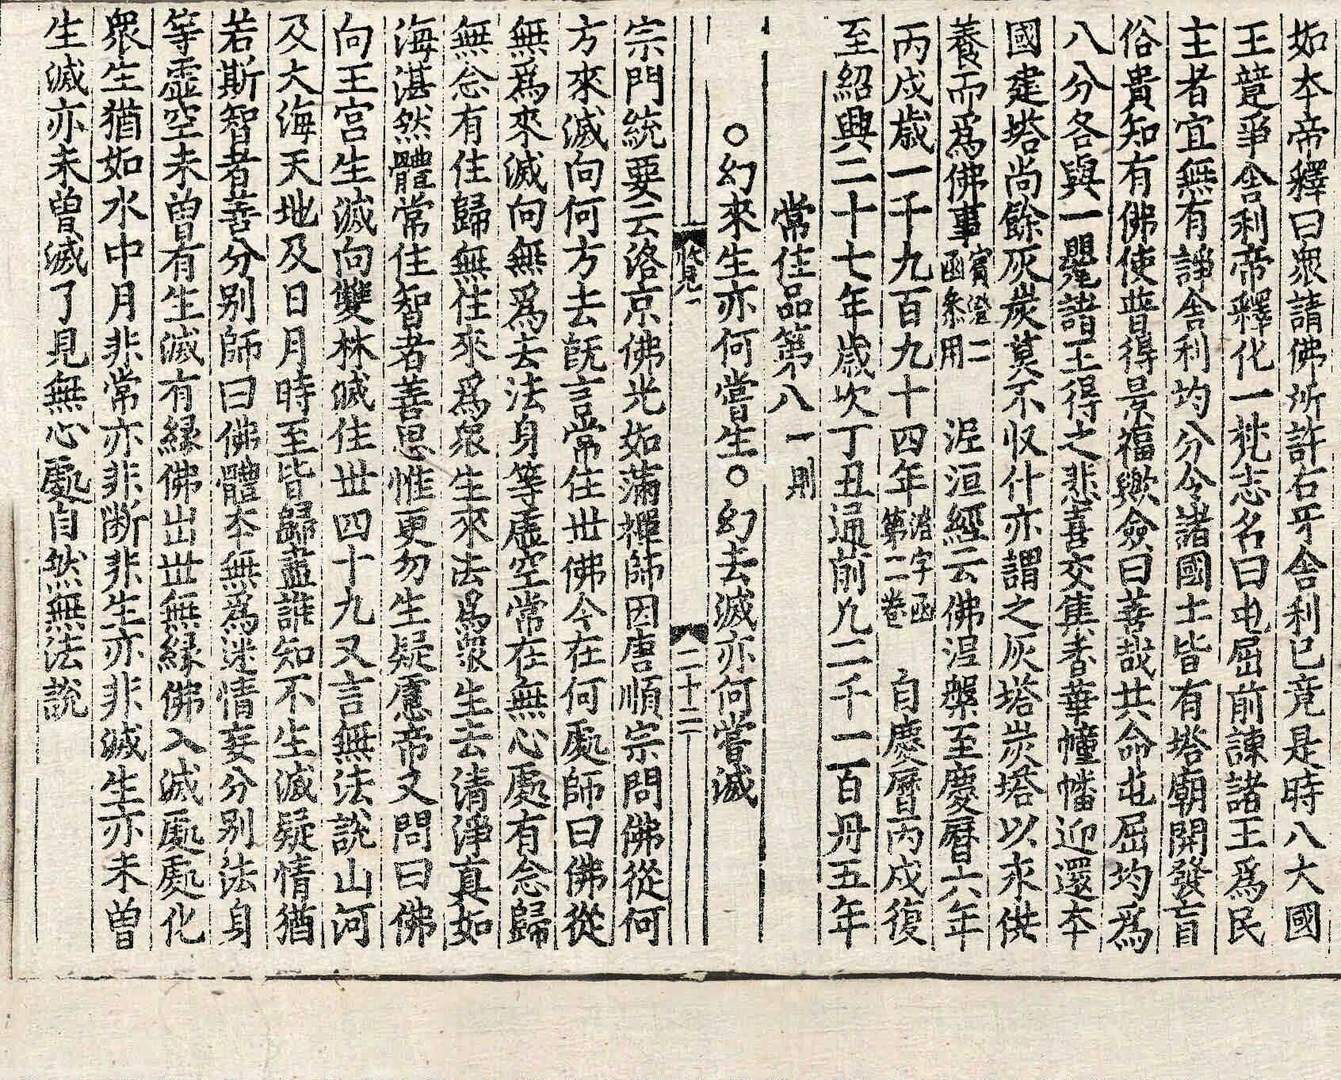 如本帝釋曰衆請佛所許右牙舍利已竟是時八大國
王競爭舍利帝釋化一梵志名曰屯屈前諫諸王爲民
主者宜無有諍舍利均分令諸國土皆有塔廟開發盲
俗貴知有佛使普得景福歟僉曰善哉共命屯屈均爲
八分各與一甖諸王得之悲喜交集香華幢幡迎還本
國建塔尚餘灰炭莫不収什亦謂之灰塔炭塔以求供
養而爲佛事寶澄二函叅用 涅洹經云佛涅槃至慶曆六年
丙戌歲一千九百九十四年澄字函第二卷 自慶曆丙戌復
至紹興二十七年歲次丁丑通前九二千一百丹五年
常住品第八 一則
○幻來生亦何嘗生○幻去滅亦何嘗滅
二十二
宗門統要云洛京佛光如滿禪師因唐順宗問佛從何
方來滅向何方去旣言常住世佛今在何處師曰佛從
無爲來滅向無爲去法身等虛空常在無心處有念歸
無念有住歸無住來爲衆生來法爲衆生去清淨眞如
海湛然體常住智者善思惟更勿生疑慮帝又問曰佛
向王宮生滅向雙林滅住世四十九又言無法說山河
及大海天地及日月時至皆歸盡誰知不生滅疑情猶
若斯智者善分別師曰佛體本無爲迷情妄分別法身
等虛空未曾有生滅有緣佛出世無緣佛入滅處處化
衆生猶如水中月非常亦非斷非生亦非滅生亦未曾
生滅亦未曾滅了見無心處自然無法說